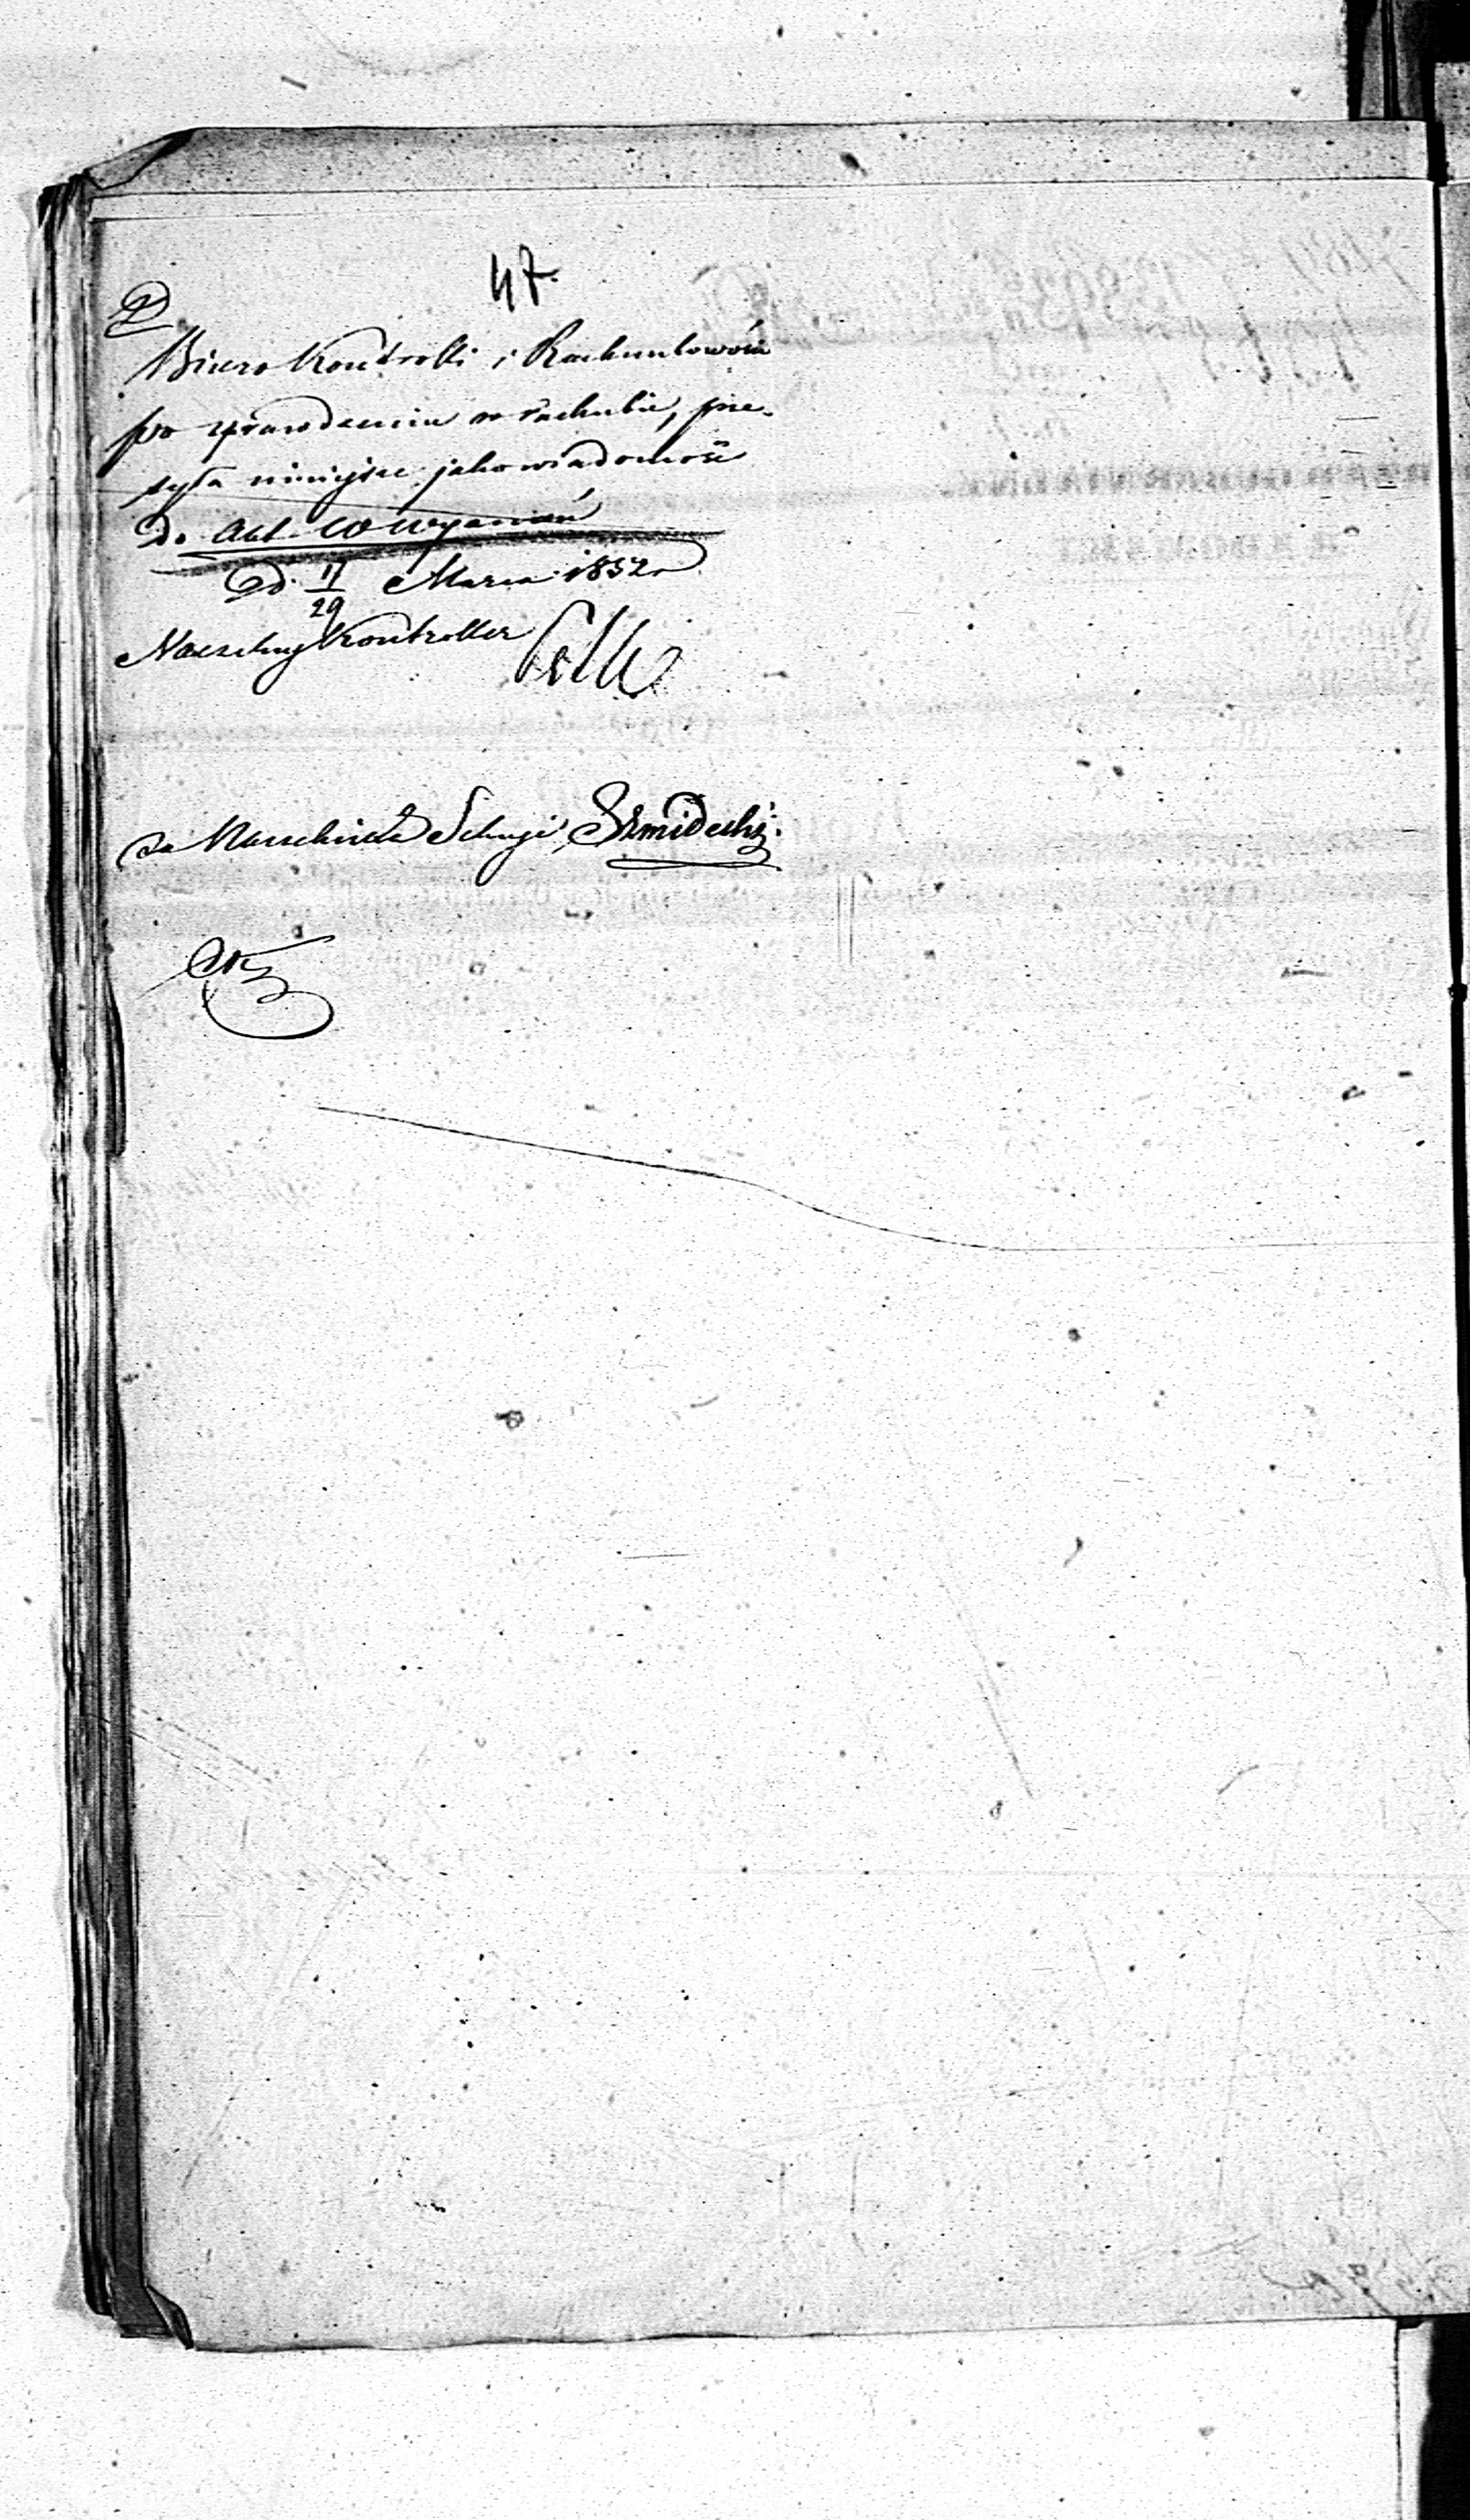 47.
Biuro Kontrolli i Rachunkowości
po sprawdzeniu w rachubie, prze-
syła niniejsze jako wiadomość
do Akt
d. 17/29 Marca 1852 r
Naczelny Kontroller
za Naczelnika Sekcyi, Szmidecki